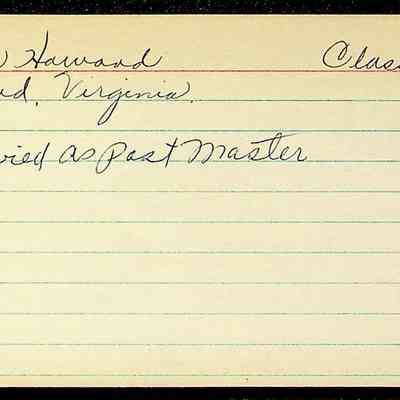 Howard Clas
Virginia.
as Past Master